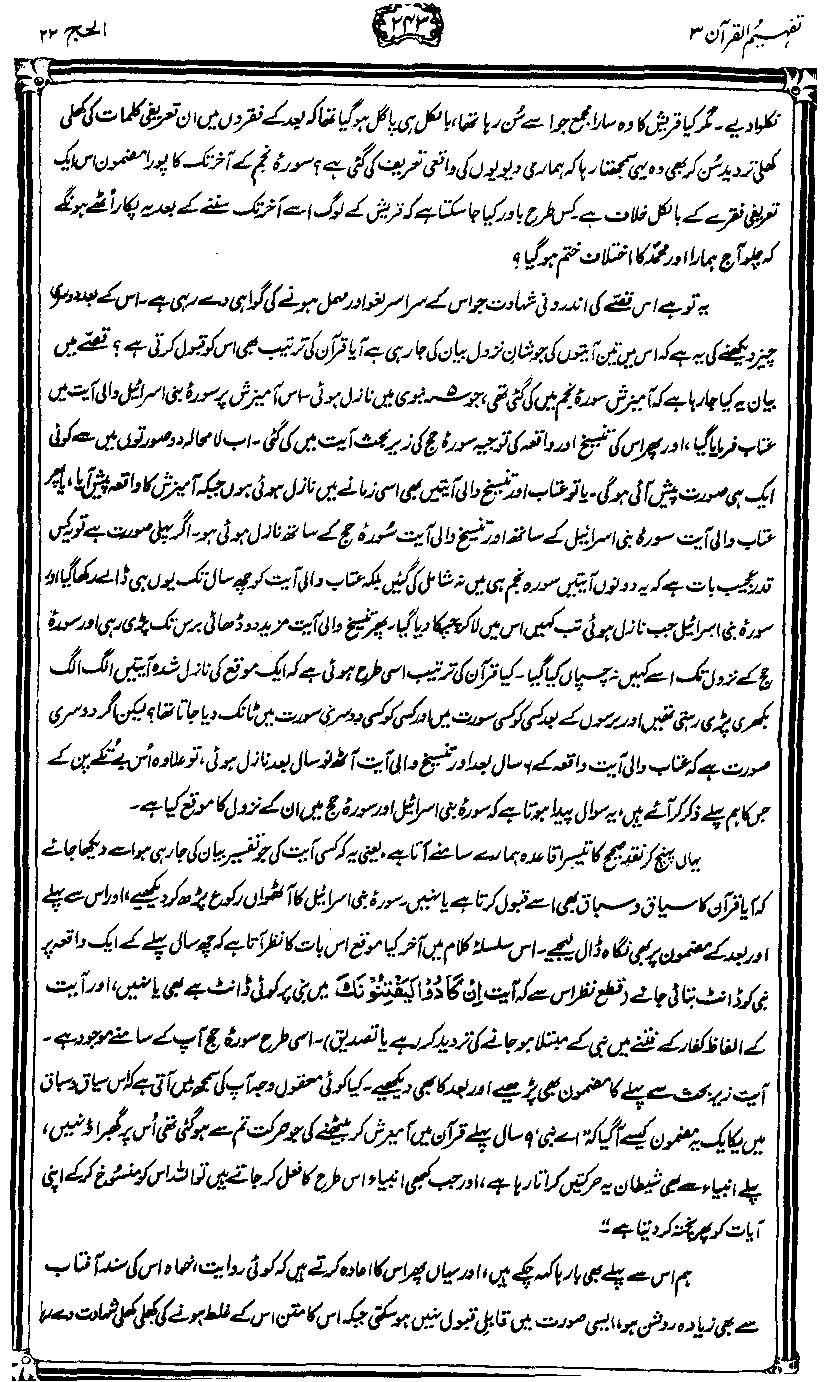 تفہیم القرآن ۳
۲۴۳
الحج ۲۲
نکلوا دیے۔ مگر کیا قریش کا وہ سارا مجمع جو اسے سُن رہا تھا، بالکل ہی پاگل ہو گیا تھا کہ بعد کے فقروں میں ان تعریفی کلمات کی کھلی
کھلی تردید سُن کر بھی وہ یہی سمجھتا رہا کہ ہماری دیویوں کی واقعی تعریف کی گئی ہے؟ سورۂ نجم کے آخر تک کا پورا مضمون اس ایک
تعریفی فقرے کے بالکل خلاف ہے۔ کس طرح باور کیا جا سکتا ہے کہ قریش کے لوگ اسے آخر تک سننے کے بعد یہ پکار اُٹھے ہونگے
کہ چلو آج ہمارا اور محمدؐ کا اختلاف ختم ہو گیا؟
یہ تو ہے اس قصّے کی اندرونی شہادت جو اس کے سراسر لغو اور مہمل ہونے کی گواہی دے رہی ہے۔ اس کے بعد دوسری
چیز دیکھنے کی یہ ہے کہ اس میں تین آیتوں کی جو شان نزول بیان کی جا رہی ہے آیا قرآن کی ترتیب بھی اس کو قبول کرتی ہے؟ قصّے میں
بیان یہ کیا جا رہا ہے کہ آمیزش سورۂ نجم میں کی گئی تھی، جو ۵ نبوی میں نازل ہوئی۔ اس آمیزش پر سورۂ بنی اسرائیل والی آیت میں
عتاب فرمایا گیا، اور پھر اس کی تنسیخ اور واقعہ کی توجیہ سورۂ حج کی زیر بحث آیت میں کی گئی۔ اب لامحالہ دو صورتوں میں سے کوئی
ایک ہی صورت پیش آئی ہو گی۔ یا تو عتاب اور تنسیخ والی آیتیں بھی اسی زمانے میں نازل ہوئی ہوں جبکہ آمیزش کا واقعہ پیش آیا، یا پھر
عتاب والی آیت سورۂ بنی اسرائیل کے ساتھ اور تنسیخ والی آیت سُورۂ حج کے ساتھ نازل ہوئی ہو۔ اگر پہلی صورت ہے تو یہ کس
قدر عجیب بات ہے کہ یہ دونوں آیتیں سورہ نجم ہی میں نہ شامل کی گئیں بلکہ عتاب والی آیت کو چھ سال تک یوں ہی ڈالے رکھا گیا اور
سورۂ بنی اسرائیل جب نازل ہوئی تب کہیں اس میں لا کر چپکا دیا گیا۔ پھر تنسیخ والی آیت مزید دو ڈھائی برس تک پڑی رہی اور سورۂ
حج کے نزول تک اسے کہیں نہ چسپاں کیا گیا۔ کیا قرآن کی ترتیب اسی طرح ہوئی ہے کہ ایک موقع کی نازل شدہ آیتیں الگ الگ
بکھری پڑی رہتی تھیں اور برسوں کے بعد کسی کو کسی سورت میں اور کسی کو کسی دوسری سورت میں ٹانک دیا جاتا تھا؟ لیکن اگر دوسری
صورت ہے کہ عتاب والی آیت واقعہ کے ۶ سال بعد اور تنسیخ والی آیت آٹھ نو سال بعد نازل ہوئی، تو علاوہ اُس بے تُکے پن کے
جس کا ہم پہلے ذکر کر آئے ہیں، یہ سوال پیدا ہوتا ہے کہ سورۂ بنی اسرائیل اور سورۂ حج میں ان کے نزول کا موقع کیا ہے۔
یہاں پہنچ کر نقد صحیح کا تیسرا قاعدہ ہمارے سامنے آتا ہے، یعنی یہ کہ کسی آیت کی جو تفسیر بیان کی جا رہی ہو اسے دیکھا جائے
کہ آیا قرآن کا سیاق و سباق بھی اسے قبول کرتا ہے یا نہیں۔ سورۂ بنی اسرائیل کا آٹھواں رکوع پڑھ کر دیکھیے، اور اس سے پہلے
اور بعد کے مضمون پر بھی نگاہ ڈال لیجیے۔ اس سلسلۂ کلام میں آخر کیا موقع اس بات کا نظر آتا ہے کہ چھ سال پہلے کے ایک واقعہ پر
نبی کو ڈانٹ بتائی جائے (قطع نظر اس سے کہ آیت اِنْ كَادُوْا لَيَفْتِنُوْنَكَ میں نبی پر کوئی ڈانٹ ہے بھی یا نہیں، اور آیت
کے الفاظ کفار کے فتنے میں نبی کے مبتلا ہو جانے کی تردید کر رہے یا تصدیق)۔ اسی طرح سورۂ حج آپ کے سامنے موجود ہے۔
آیت زیر بحث سے پہلے کا مضمون بھی پڑھیے اور بعد کا بھی دیکھیے۔ کیا کوئی معقول وجہ آپ کی سمجھ میں آتی ہے کہ اس سیاق و سباق
میں یکایک یہ مضمون کیسے آ گیا کہ ”اے نبی، ۹ سال پہلے قرآن میں آمیزش کر بیٹھنے کی جو حرکت تم سے ہو گئی تھی اُس پر گھبراؤ نہیں،
پہلے انبیاء سے بھی شیطان یہ حرکتیں کراتا رہا ہے، اور جب کبھی انبیاء اس طرح کا فعل کر جاتے ہیں تو اللہ اس کو منسوخ کر کے اپنی
آیات کو پھر پختہ کر دیتا ہے“۔
ہم اس سے پہلے بھی بارہا کہہ چکے ہیں، اور یہاں پھر اس کا اعادہ کرتے ہیں کہ کوئی روایت، خواہ اس کی سند آفتاب
سے بھی زیادہ روشن ہو، ایسی صورت میں قابلِ قبول نہیں ہو سکتی جبکہ اس کا متن اس کے غلط ہونے کی کھلی کھلی شہادت دے رہا